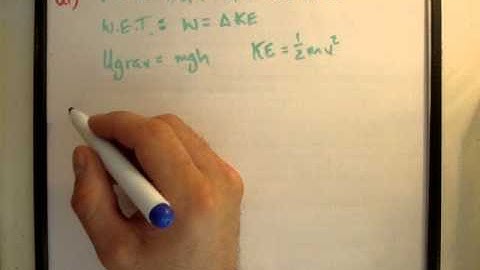 W.E.T.: W = ΔKE
Ugrav = mgh KE = ½mv²